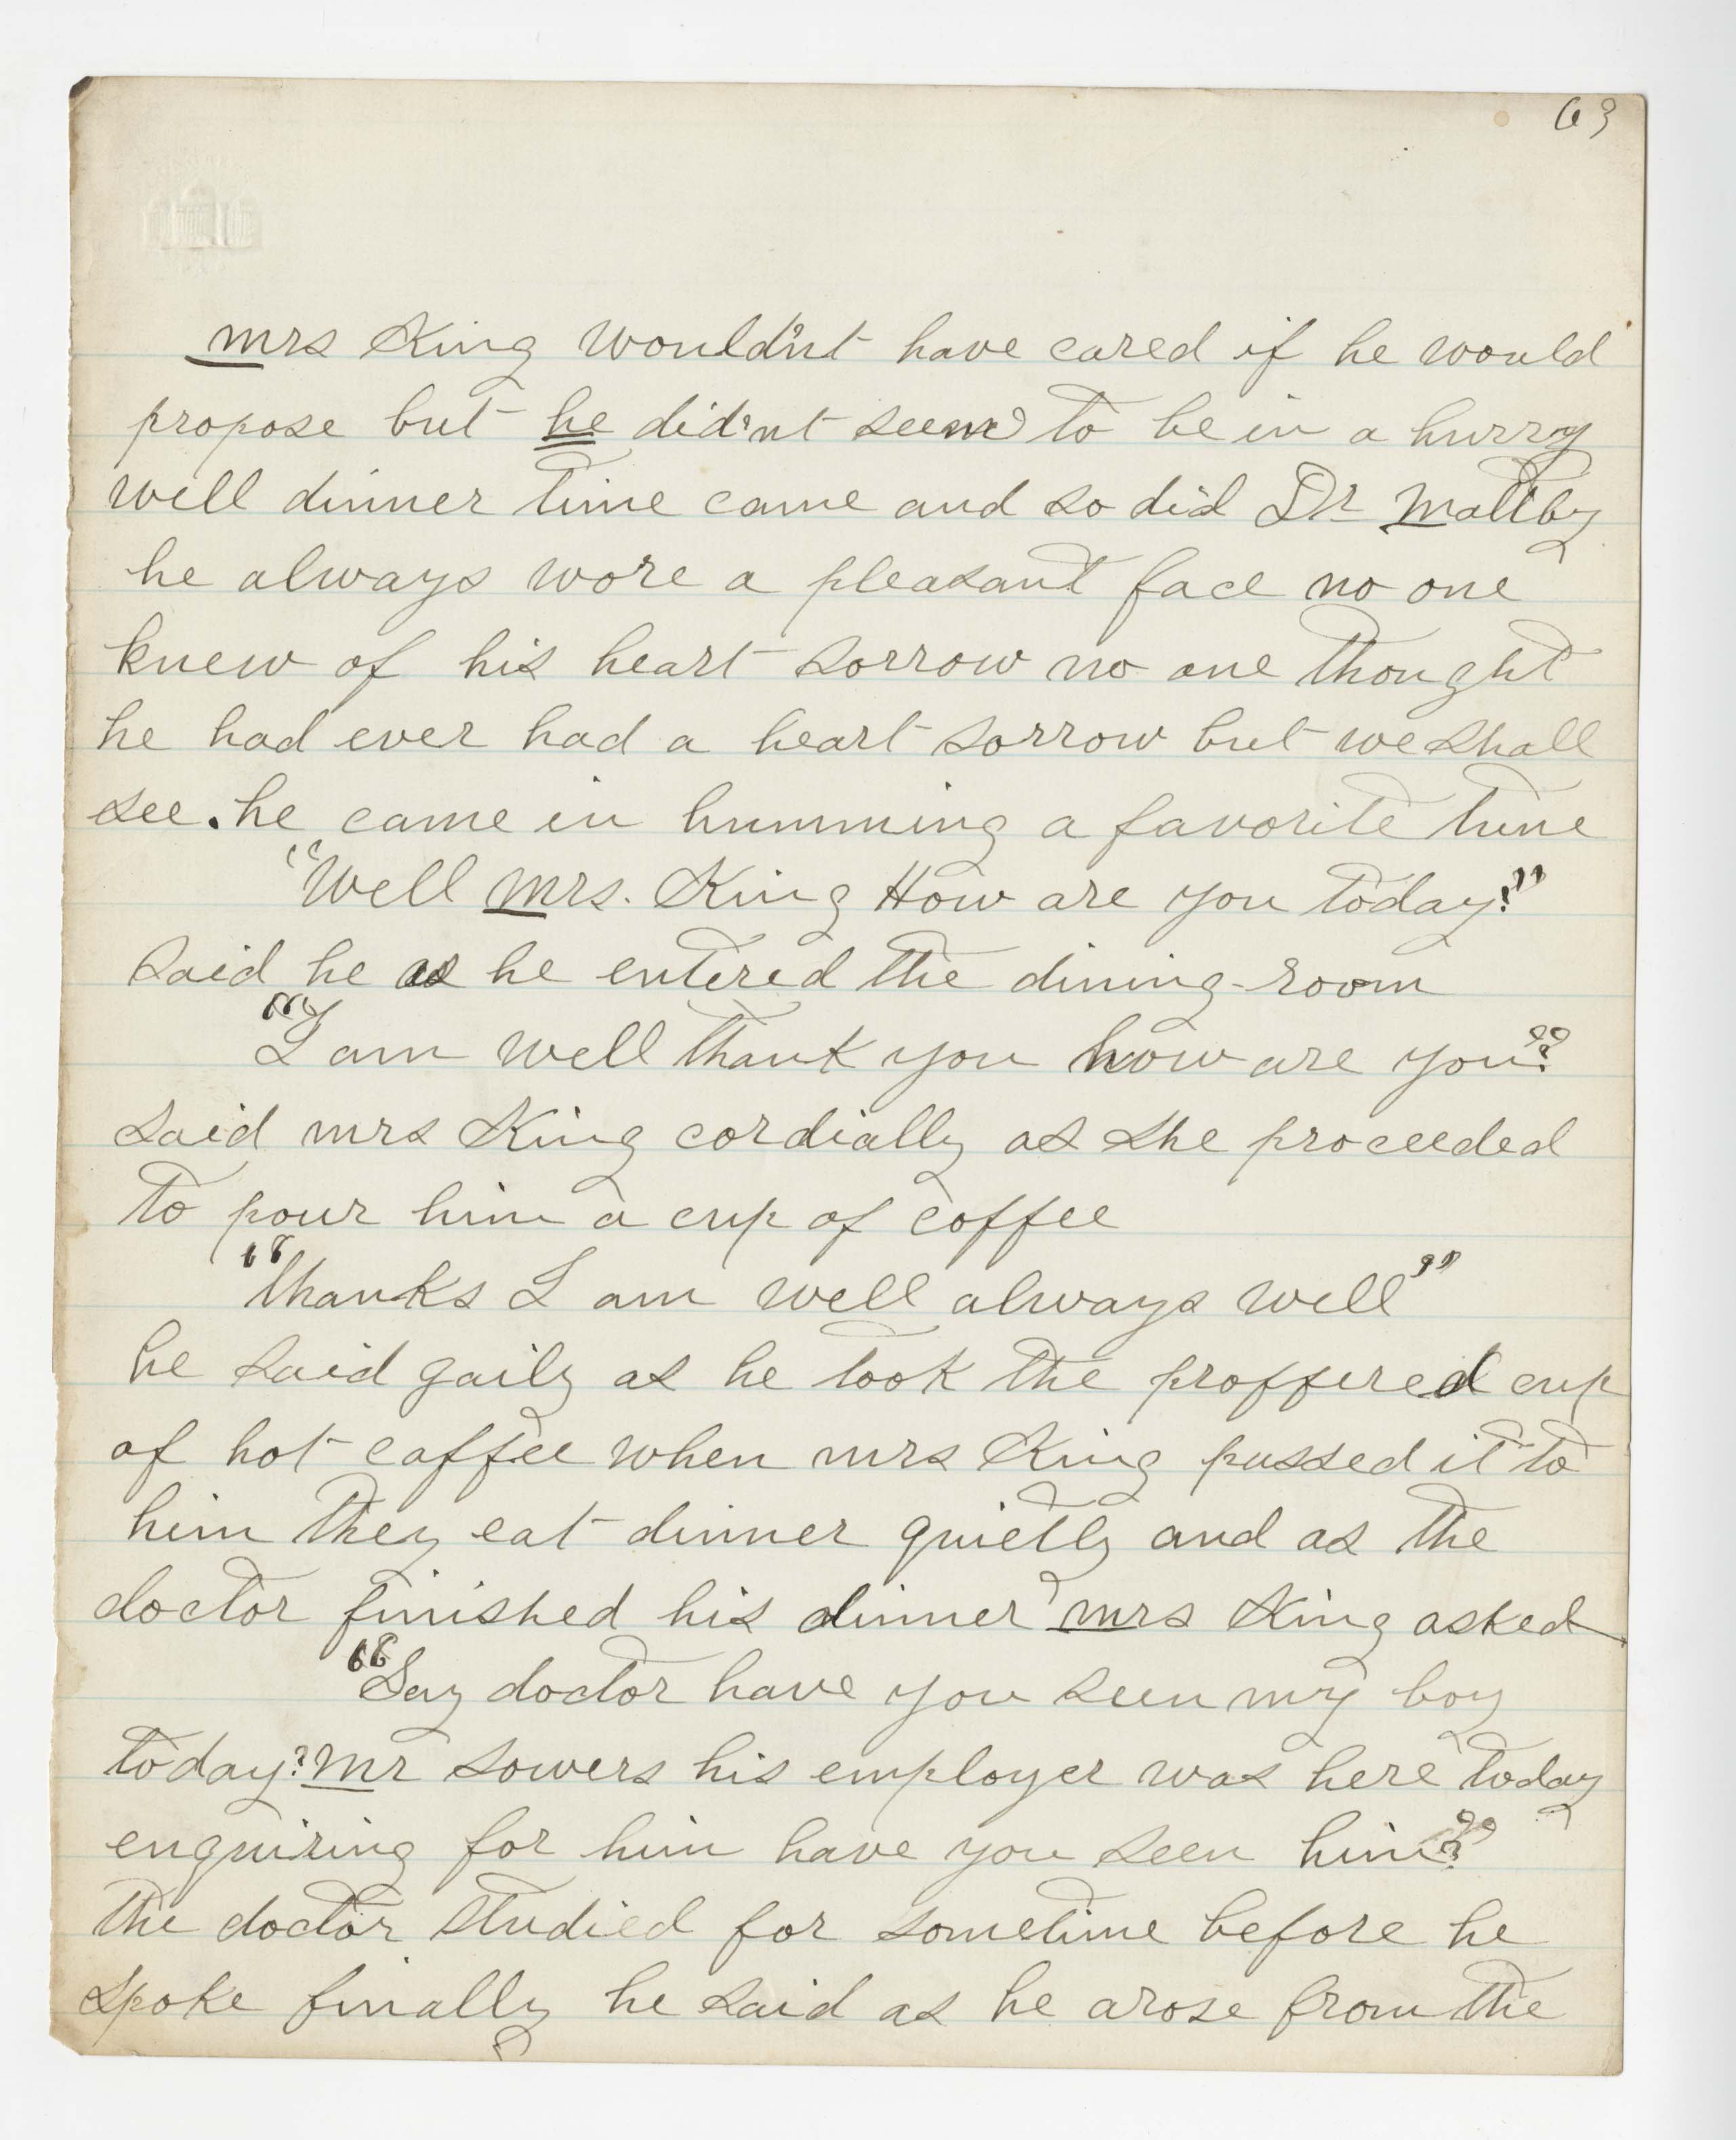 63
mrs King would'nt have cared if he would
propose but he did'nt seem to be in a hurry
well dinner time came and so did Dr Maltby
he always wore a pleasant face no one
knew of his heart sorrow no one thought
he had ever had a heart sorrow but we shall
see. he came in humming a favorite tune
"Well Mrs. King How are you today?"
said he as he entered the dining-room
"I am well thank you how are you?"
said mrs King cordially as she proceeded
to pour him a cup of coffee
"thanks I am well always well"
he said gaily as he took the proffered cup
of hot coffee when mrs King passed it to
him they eat dinner quietly and as the
doctor finished his dinner mrs King asked
"Say doctor have you seen my boy
today? Mr Sowers his employer was here today
enquiring for him have you seen him?"
the doctor studied for sometime before he
spoke finally he said as he arose from the